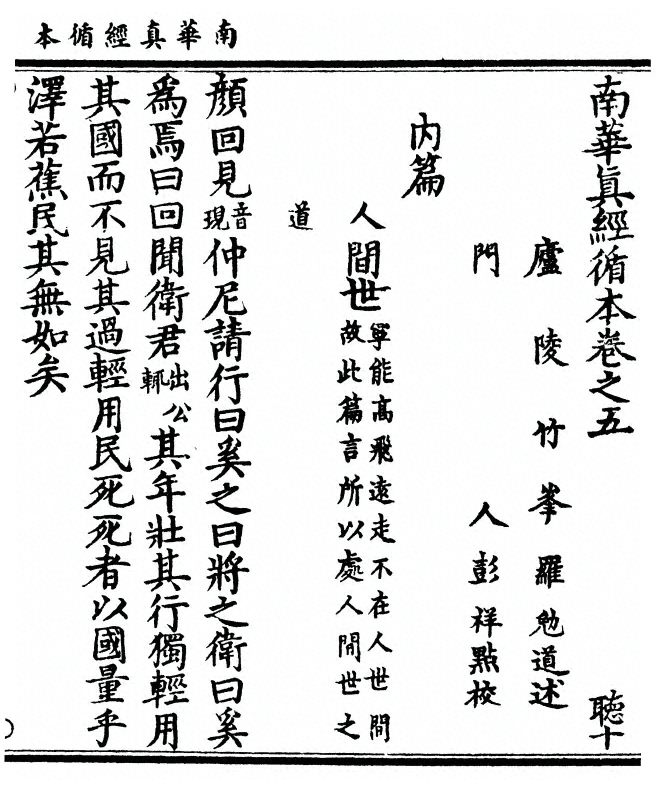 南華真經循本
南華眞經循本卷之五 聽十
廬陵竹峯羅勉道述
門人彭祥點校
内篇
人間世 寧能高飛遠走不在人世間
故此篇言所以處人間世之
道
顔回見音現仲尼請行曰奚之曰將之衛曰奚
爲焉曰回聞衛君出公輒其年壯其行獨輕用
其國而不見其過輕用民死死者以國量乎
澤若蕉民其無如矣